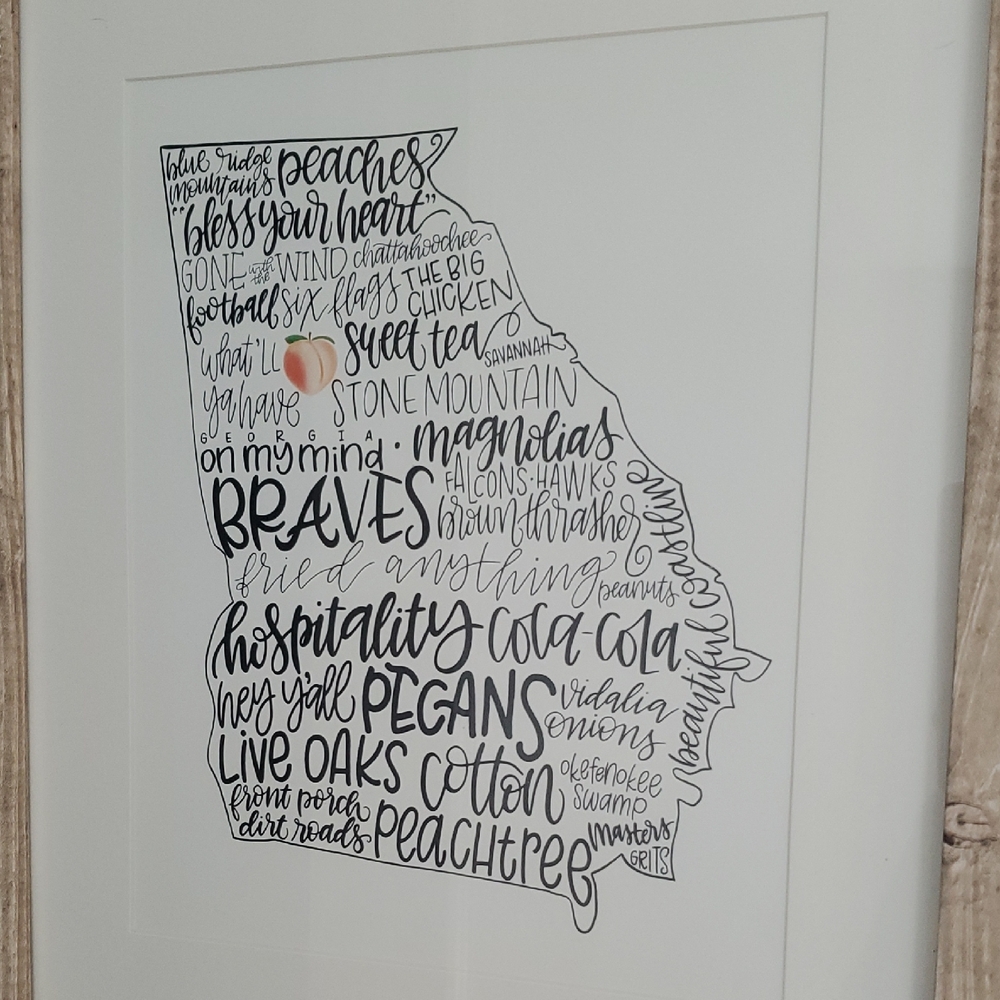 blue ridge mountains
peaches
"bless your heart"
GONE with the WIND
chattahoochee
football
six flags
THE BIG CHICKEN
what'll ya have
sweet tea
SAVANNAH
STONE MOUNTAIN
GEORGIA
on my mind · magnolias
BRAVES
FALCONS·HAWKS
brown thrasher
fried anything
peanuts
beautiful coastline
hospitality
coca-cola
hey y'all
PECANS
vidalia onions
LIVE OAKS
cotton
okefenokee swamp
front porch
dirt roads
PEACHTREE
masters
GRITS